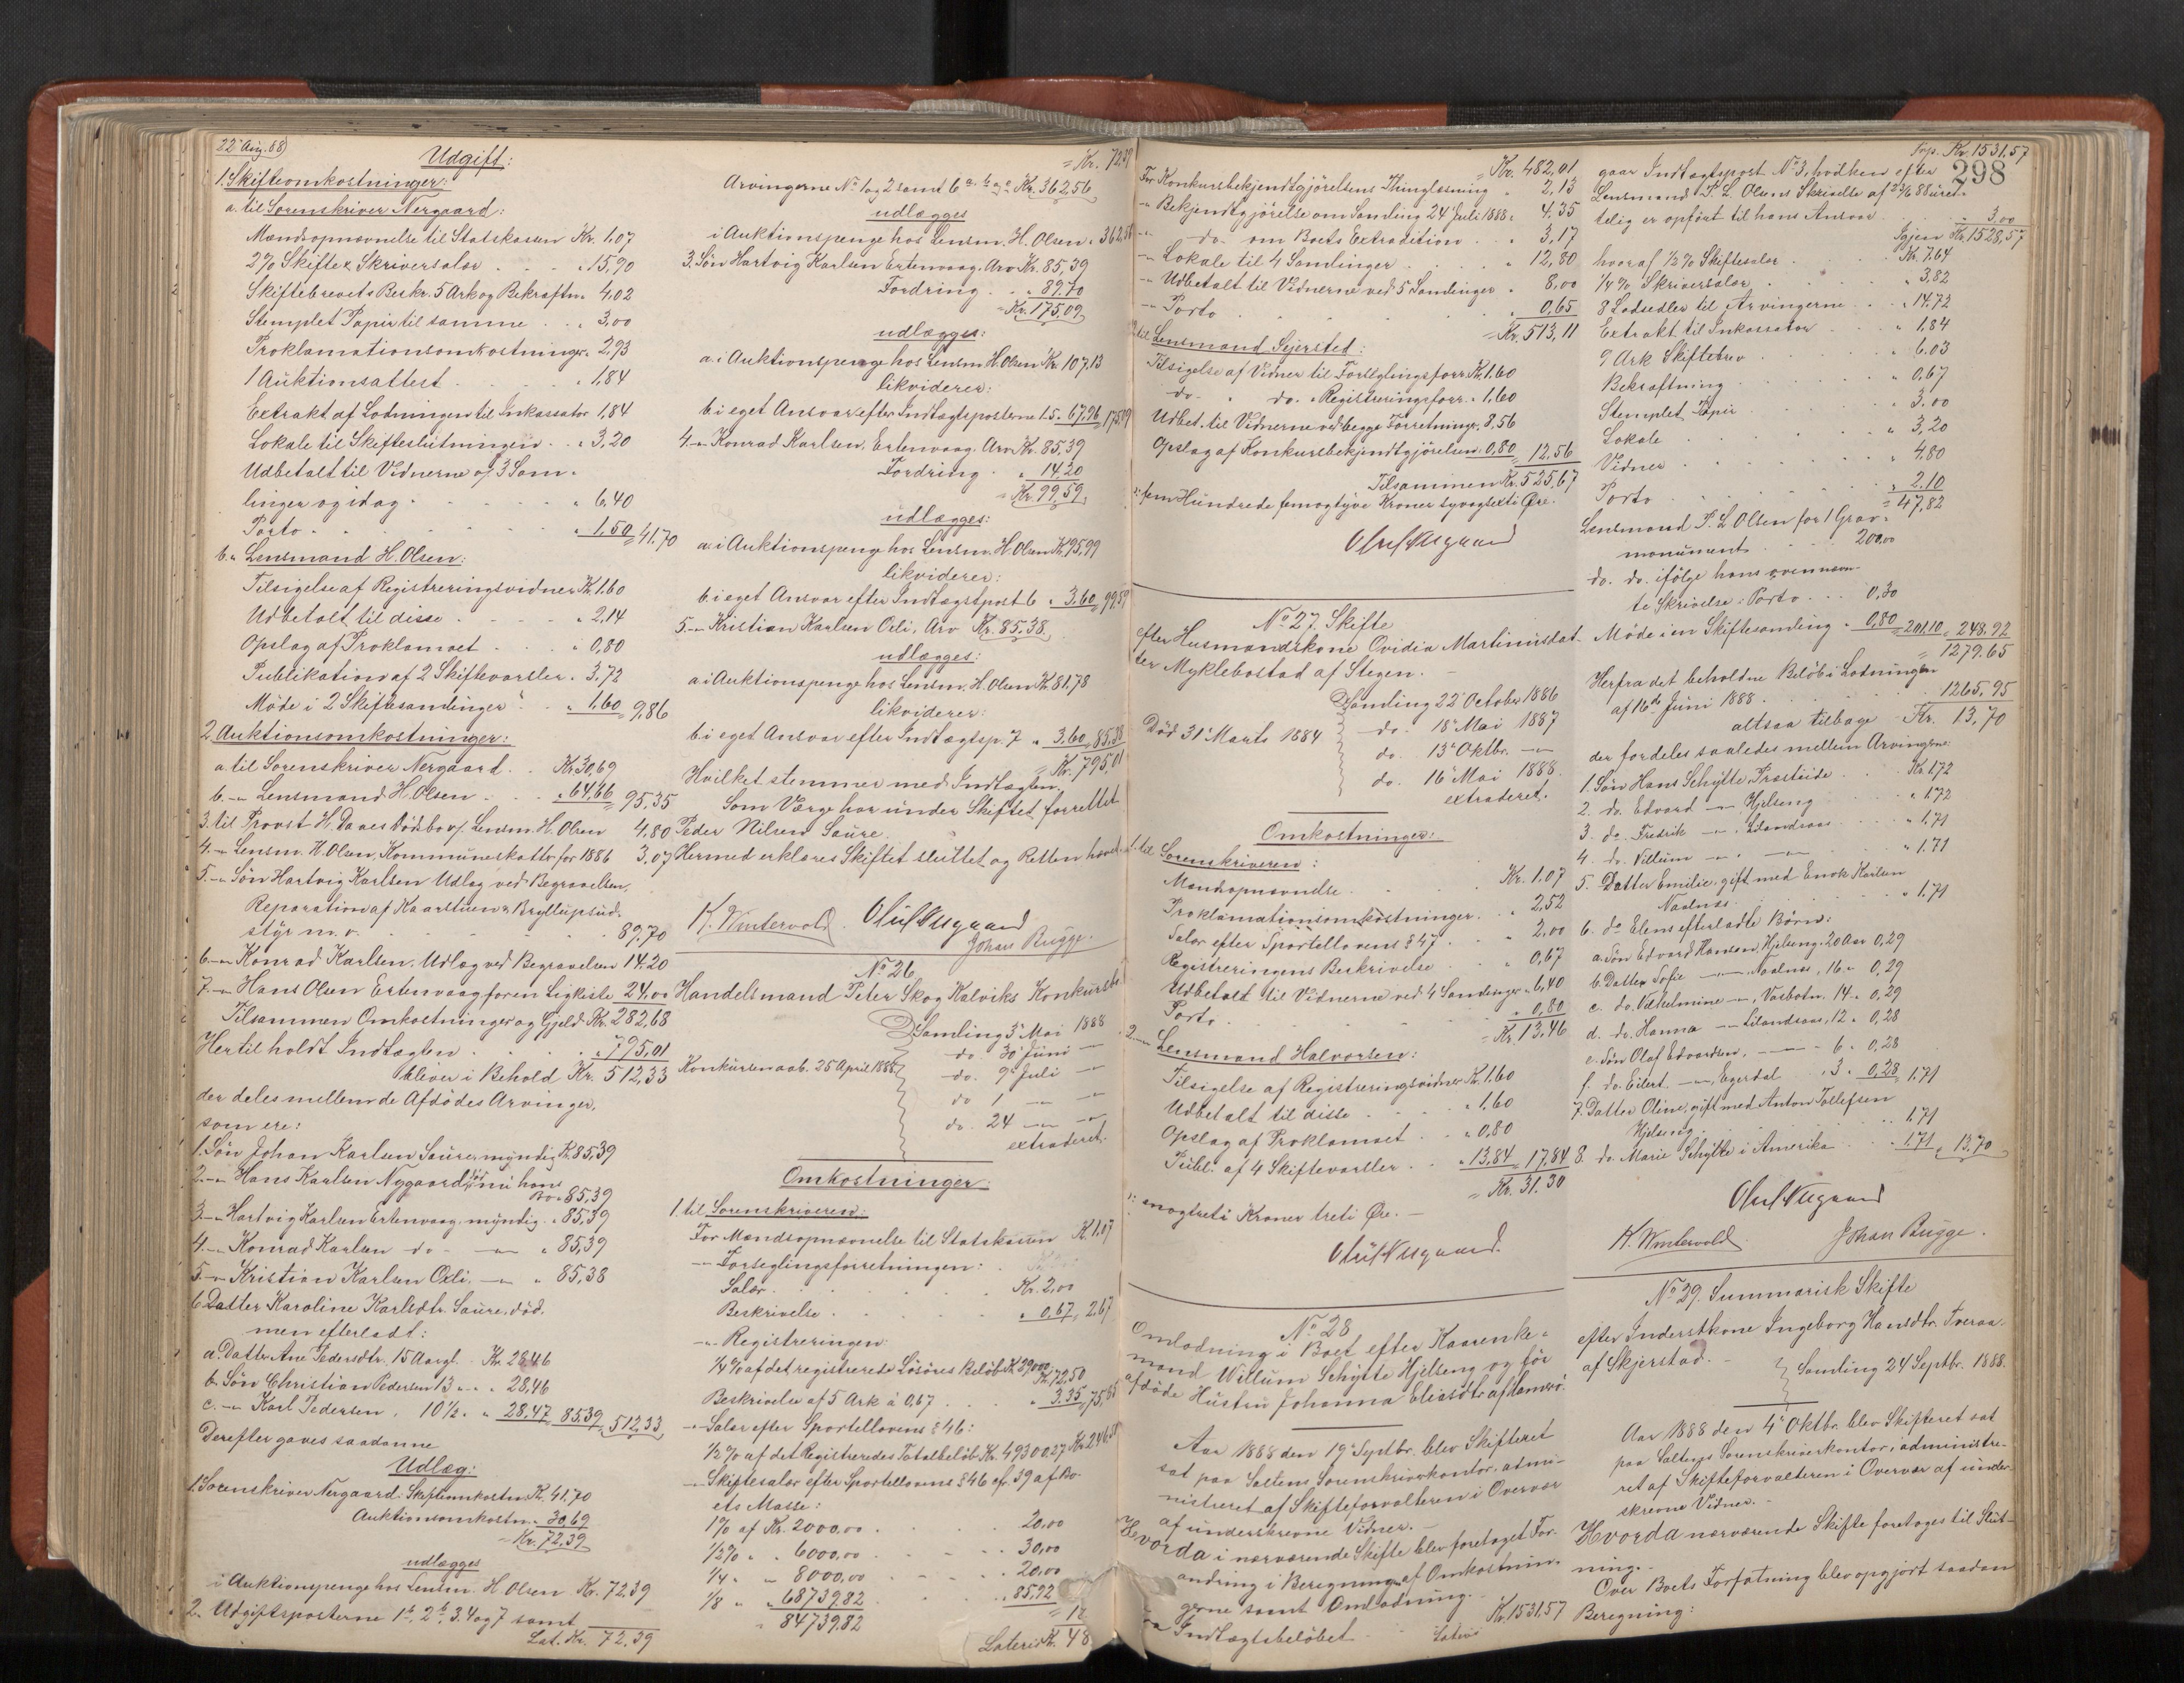 22 Aug. 88)
Udgift:
1. Skifteomkostninger:
a. til Sorenskriver Nergaard:
Mændsopnævnelse til Statskassen Kr. 1,07
2% Skifte & Skriversalær . . . " 15,90
Skiftebrevets Beskr. 5 Ark og Bekræftn. 4,02
Stemplet Papir til samme . . " 3,00
Proklamationsomkostninger " 2,93
1 Auktionsattest . . . " 1,84
Extrakt af Lodningen til Inkassator 1,84
Lokale til Skifteslutningen . . " 3,20
Udbetalt til Vidnerne v/ 3 Sam-
linger og idag . . . . " 6,40
Porto . . . . " 1,50 = 41.70
b. " Lensmand H. Olsen:
Tilsigelse af Registreringsvidner Kr. 1.60
Udbetalt til disse . . . " 2,14
Opslag af Proklamaet . . " 0,80
Publikation af 2 Skiftevarsler . 3,72
Møde i 2 Skiftesamlinger . . " 1,60 = 9,86
2. Auktionsomkostninger:
a. til Sorenskriver Nergaard . . Kr. 30,69
b. -"- Lensmand H. Olsen . . " 64,66 = 95,35
3. til Provst H. Daaes Dødsbo v/ Lensm. H. Olsen 4,80
4. -"- Lensm. H. Olsen, Kommuneskatt for 1886 3,07
5. -"- Søn Hartvig Karlsen Udlæg ved Begravelsen,
Reparation af Kaarstuen & Bryllupsud-
styr m. v. . . . . 89,70
6. -"- Konrad Karlsen, Udlæg ved Begravelsen 14.20
7. -"- Hans Olsen Ertenvaag for en Ligkiste 24,00
Tilsammen Omkostninger og Gjeld Kr. 282,68
Hertil holdt Indtægten . . . " 795,01
bliver i Behold Kr. 512,33
der deles mellem de Afdødes Arvinger,
som ere:
1. Søn Johan Karlsen Saure, myndig Kr. 85,39
2. -"- Hans Karlsen Nygaard, død, nu hans
Bo " 85,39
3. -"- Hartvig Karlsen Ertenvaag, myndig . " 85,39
4. -"- Konrad Karlsen do - -"- " 85,39
5. -"- Kristian Karlsen Oeli. -"- " 85,38
6. Datter Karoline Karlsdtr. Saure, død,
men efterladt:
a. Datter Ane Pedersdtr. 15 Aar gl. . Kr. 28,46
b. Søn Christian Pedersen 13 -"- . " 28,46
c. -"- Karl Pedersen, 10½ " . " 28,47 = 85,39 = 512,33
Derefter gaves saadanne
Udlæg:
1. Sorenskriver Nergaard: Skifteomkostn. Kr. 41,70
Auktionsomkostn. " 30,69
= Kr. 72,39
udlægges
i Auktionspenge hos Lensm. H. Olsen Kr. 72,39
2. Udgiftsposterne 1 b, 2 b, 3. 4 og 7 samt
Lat. Kr. 72,39
= Kr. 72,39
Arvingerne No 1 og 2 samt 6 a, b og c Kr. 362,56
udlægges
i Auktionspenge hos Lensm. H. Olsen " 362,56
3. Søn Hartvig Karlsen Ertenvaag, Arv Kr. 85,39
Fordring . . " 89,70
= Kr. 175,09
udlægges:
a. i Auktionspenge hos Lensm. H. Olsen Kr. 107,13
likviderer:
b. i eget Ansvar efter Indtægtsposterne 1.5 " 67,96 = 175,09
4. -"- Konrad Karlsen, Ertenvaag, Arv Kr. 85,39
Fordring . " 14,20
= Kr. 99,59
udlægges:
a. i Auktionspenge hos Lensm. H. Olsen Kr. 95,99
likviderer:
b. i eget Ansvar efter Indtægtspost 6 " 3,60 = 99,59
5. -"- Kristian Karlsen Oeli, Arv Kr. 85,38
udlægges:
a. i Auktionspenge hos Lensm. H. Olsen Kr. 81,78
likviderer:
b. i eget Ansvar efter Indtægtsp. 7 " 3,60 = 85,38
= Kr. 795,01
Hvilket stemmer med Indtægten.
Som Værge har under Skiftet forrettet
Peder Nilsen Saure.
Hermed erklæres Skiftet sluttet og Retten hævet.
K. Wintervold. Oluf Nergaard
Johan Bugge.
No 26
Handelsmand Peter Skog Kalviks Konkursbo
Samling 3' Mai 1888
do. 30' Juni -"-
Konkursen aab. 25 April 1888
do. 9' Juli -"-
do 1 -"- -"-
do. 24 -"- -"-
extraderet.
Omkostninger:
1. til Sorenskriveren:
For Mændsopnævnelse til Statskassen Kr. 1,07
-"- Forseglingsforretningen:
Salær . . . . Kr. 2,00
Beskrivelse . . . " 0,67 = 2,67
-"- Registreringen:
¼ % af det registrerede Løsøres Beløb Kr. 29000 Kr. 72,50
Beskrivelse af 5 Ark à 0,67 . . " 3.35 = 75,85
-"- Salær efter Sportellovens § 46:
½ % af det Registreredes Totalbeløb Kr. 49300.27 Kr. 246,50
-"- Skiftesalær efter Sportellovens § 46 cfr. 39 af Bo-
ets Masse:
1 % af Kr. 2000,00 . . . 20,00
½ % " " 6000,00 . . . 30,00
¼ " -"- 8000,00 . . . 20,00
1/8 " " 68739,82 . . . 85,92
" 84739,82
Lateris Kr. 48
Kr. 482,01
For Konkursbekjendtgjørelsens Thinglæsning " 2,13
-"- Bekjendtgjørelse om Samling 24' Juli 1888 " 4,35
-"- do. om Boets Extradition . . " 3,17
-"- Lokale til 4 Samlinger . . . " 12,80
-"- Udbetalt til Vidnerne ved 5 Samlinger " 8,00
-"- Porto . . . . " 0,65
= Kr. 513,11
2. til Lensmand Sejersted:
Tilsigelse af Vidner til Forseglingsforr. Kr. 1.60
do. " do. " Registreringsforr. " 1,60
Udbet. til Vidnerne ved begge Forretninger 8,56
Opslag af Konkursbekjendtgjørelsen: 0,80 = 12.56
Tilsammen Kr. 525,67
fem Hundrede femogtyve Kroner syvogsexti Øre.
Oluf Nergaard
No 27. Skifte
efter Husmandskone Ovidia Martinusdat-
ter Myklebostad af Stegen.
Samling 22' October 1886
do. 18' Mai 1887
Død 31' Marts 1884
do. 13' Oktbr. -"-
do. 16' Mai 1888.
extraderet.
Omkostninger:
1. til Sorenskriveren:
Mændsopnævnelse . . . Kr. 1.07
Proklamationsomkostninger . . " 2,52
Salær efter Sportellovens § 47 . . " 2,00
Registreringens Beskrivelse . . " 0,67
Udbetalt til Vidnerne ved 4 Samlinger " 6,40
Porto . . . . " 0,80
= Kr. 13,46
2. -"- Lensmand Halvorsen:
Tilsigelse af Registreringsvidner Kr. 1,60
Udbetalt til disse . . . " 1,60
Opslag af Proklamaet . . " 0,80
Publ. af 4 Skiftevarsler . . " 13,84 = 17,84
= Kr. 31.30
enogtreti Kroner treti Øre. —
Oluf Nergaard.
No 28
Omlodning i Boet efter Kaarenke-
mand Willum Schytte Hjelseng og før
afdøde Hustru Johanna Eliasdtr. af Hamerø.
Aar 1888 den 19' Septbr. blev Skifteret
sat paa Saltens Sorenskriverkontor, admi-
nistreret af Skifteforvalteren i Overvær
af underskrevne Vidner. —
Hvorda i nærværende Skifte blev foretaget For-
andring i Beregning af Omkostnin-
gerne samt Omlodning. —
Indtægtsbeløbet . . Kr. 1531,57
Lateris
Trp. Kr. 1531,57
298
gaar Indtægtspost No 3, hvilken efter
Lensmand P. L. Olsens Skrivelse af 23/6 88 uret-
telig er opført til hans Ansvar . . 3,00
Igjen Kr. 1528,57
hvoraf ½ % Skiftesalær . . Kr. 7,64
¼ % Skriversalær . . . " 3,82
8 Lodsedler til Arvingerne . . " 14,72
Extrakt til Inkassator . . " 1,84
9 Ark Skiftebrev . . . " 6.03
Bekræftning . . . " 0,67
Stemplet Papir . . . " 3.00
Lokale . . . . " 3,20
Vidner . . . . " 4,80
Porto . . . . " 2.10
= 47,82
Lensmand P. L. Olsen for 1 Grav-
monument . . 200,00
do. do. ifølge hans ovennævn-
te Skrivelse: Porto . . 0,30
Møde i en Skiftesamling " 0,80 = 201,10 = 248,92
= 1279.65
Herfra det beholdne Beløb i Lodningen
af 16de Juni 1888 . . . 1265,95
altsaa tilbage Kr. 13,70
der fordeles saaledes mellem Arvingerne:
1. Søn Hans Schytte, Præsteide . . Kr. 1.72
2. do. Edvard -"- Hjelseng . . " 1.72
3. do. Fredrik -"-, Lilandsaas . . " 1.71
4. do. Villum -"-. -"- . . " 1.71
5. Datter Emilie, gift med Enok Karlsen
Naalnæs . . . " 1.71
6. do Elens efterladte Børn:
a. Søn Edvard Hansen, Hjelseng, 20 Aar 0,29
b. Datter Sofie -"- Naalnæs, 16 " 0,29
c. do. Vilhelmine -"-, Vasbotn. 14 " 0,29
d. do. Hanna -"- Lilandsaas, 12 " 0,28
e. Søn Olaf Edvardsen, -"- 6 " 0,28
f. do. Eilert. -"- Egerdal . 3 " 0,28 = 1,71
7. Datter Oline, gift med Anton Tollefsen
Hjelseng . . . " 1,71
8. do. Marie Schytte i Amerika . . " 1,71 = 13,70
Oluf Nergaard
K. Wintervold. Johan Bugge.
No 29. Summarisk Skifte
efter Inderstkone Ingeborg Hansdtr. Tveraa
af Skjerstad. —
Samling 24 Septbr. 1888.
Aar 1888 den 4' Oktbr. blev Skifteret sat
paa Saltens Sorenskriverkontor, administre-
ret af Skifteforvalteren i Overvær af under-
skrevne Vidner. —
Hvorda nærværende Skifte foretoges til Slut-
ning. —
Over Boets Forfatning blev opgjort saadan
Beregning: